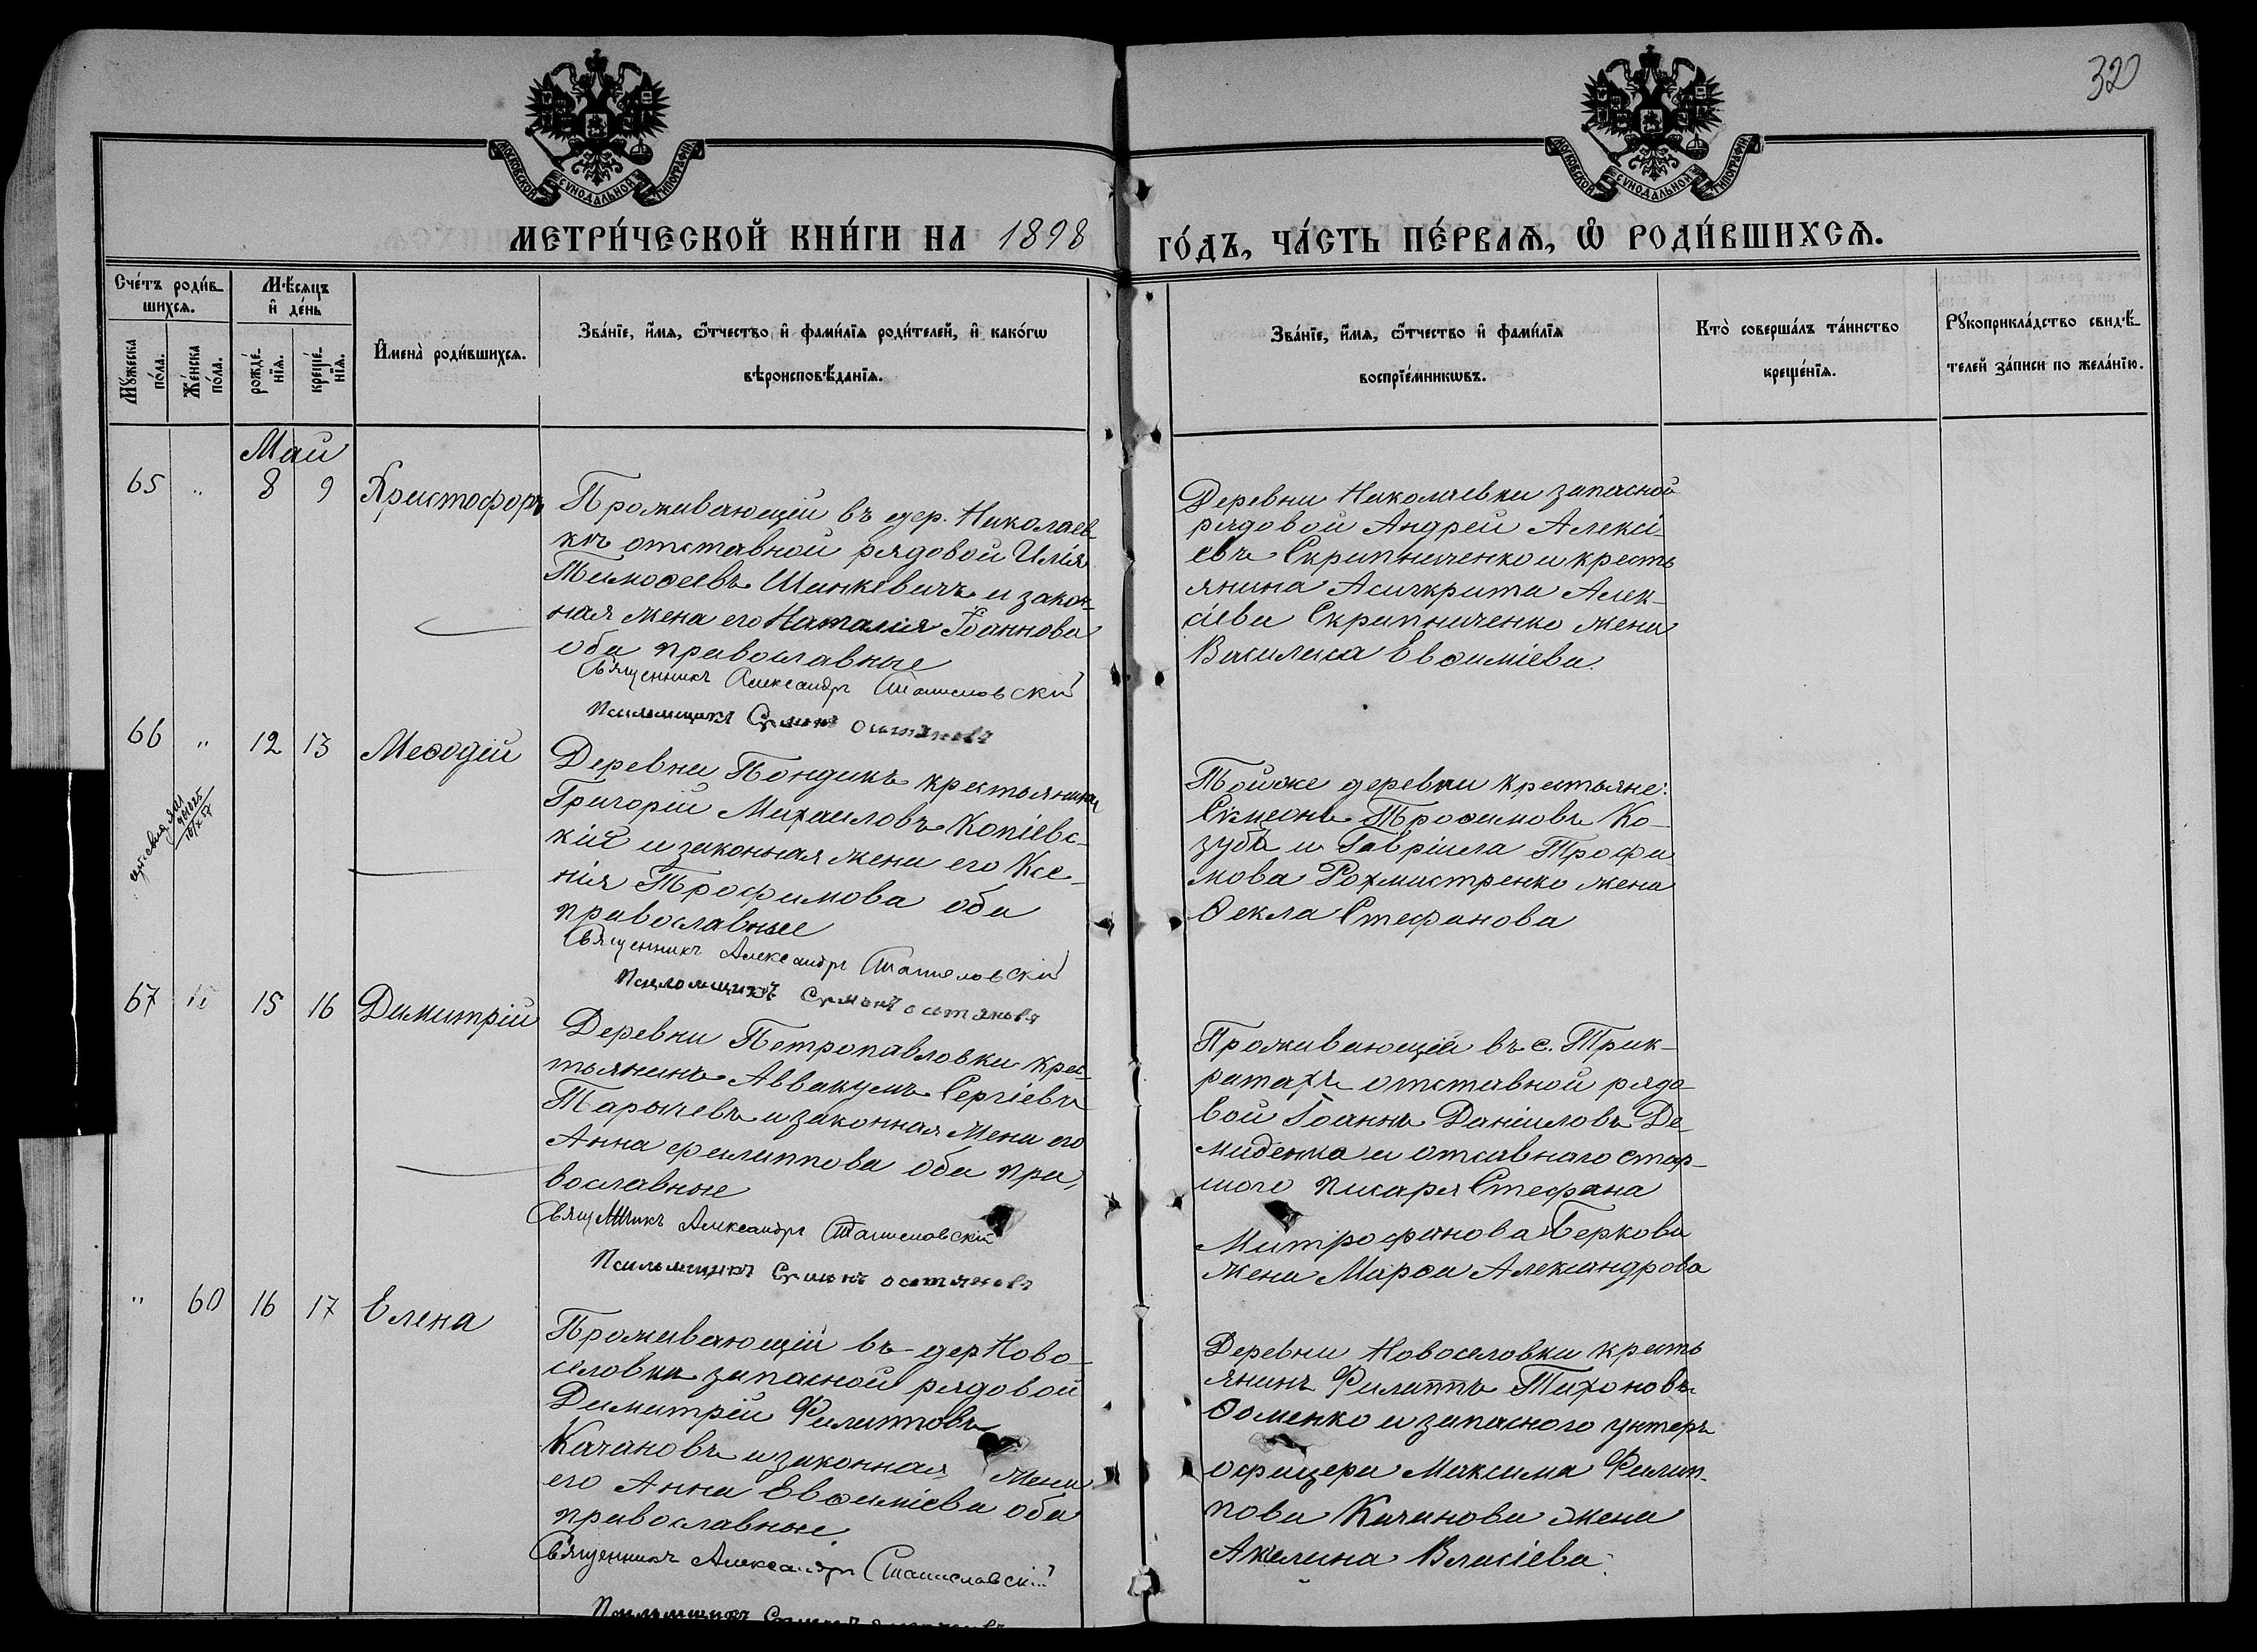 320
МОСКОВСКОЙ СѴНОДАЛЬНОЙ ТИПОГРАФІИ
МОСКОВСКОЙ СѴНОДАЛЬНОЙ ТИПОГРАФІИ
МЕТРИ́ЧЕСКОЙ КНИ́ГИ НА 1898 ГО́ДЪ, ЧА́СТЬ ПЕ́РВАѦ, Ѡ҆ РОДИ́ВШИХСѦ.
Сче́тъ роди́в-
шихсѧ.
Мꙋ́жеска по́ла.
Же́нска по́ла.
Мѣ́сѧцъ
и҆ де́нь
рожде́-
нїѧ.
креще́-
нїѧ.
И҆мена̀ роди́вшихсѧ.
Зва́нїе, и҆́мѧ, ѻ҆́тчество и҆ фами́лїѧ роди́телей, и҆ како́гѡ
вѣроисповѣ́данїѧ.
Зва́нїе, и҆́мѧ, ѻ҆́тчество и҆ фами́лїѧ
воспрїе́мникѡвъ.
Кто̀ соверша́лъ та́инство
креще́нїѧ.
Рꙋкоприкла́дство свидѣ́-
телей за́писи по жела́нїю.
Май
65 " 8 9 Христофоръ
Проживающій въ дер. Николаев-
кѣ отставной рядовой Илія
Тимоѳеевъ Шинкевичъ и закон-
ная жена его Наталія Іоаннова
оба православные
Священникъ Александръ Станиславскій
Псаломщикъ Сумонъ остяновъ
Деревни Николаевки запасной
рядовой Андрей Алексі-
евъ Скрипниченко и кресть
янина Асигкрита Алек-
сіева Скрипниченко жена
Василиса Евѳиміева.
66 " 12 13 Меѳодій
Деревни Бондикъ крестьянинъ
Григорій Михаиловъ Копіевс-
кій и законная жена его Ксе-
нія Трофимова оба
православные
Священникъ Александръ Станиславскій
Псаломщикъ Сумонъ остяновъ
Тойже деревни крестьяне:
Симеонъ Троѳимовъ Ко-
зуба и Гавріила Трофи-
мова Рохмистренко жена
Ѳекла Стефанова
67 " 15 16 Димитрій
Деревни Петропавловки крес-
тьянинъ Аввакумъ Сергіевъ
Тарычевъ и законная жена его
Анна филиппова оба пра-
вославные
Священникъ Александръ Станиславскій
Псаломщикъ Сумонъ остяновъ
Проживающій въ с. Трик-
ратахъ отставной рядо-
вой Іоаннъ Даніиловъ Де-
миденко и отсавнаго стар-
шого писаря Стефана
Митрофанова Беркова
жена Марѳа Александрова
" 60 16 17 Елена
Проживающій въ дер Ново-
селовки запасной рядовой
Димитрій Филипповъ
Качановъ и законная жена
его Анна Евѳиміева оба
православные.
Священникъ Александръ Станиславскій
Псаломщикъ
Деревни Новоселовки кресть
янинъ Филиппъ Тихоновъ
Ѳоменко и запасного унтеръ
офицера Максима Филип-
пова Качанова жена
Акилина Власіева.